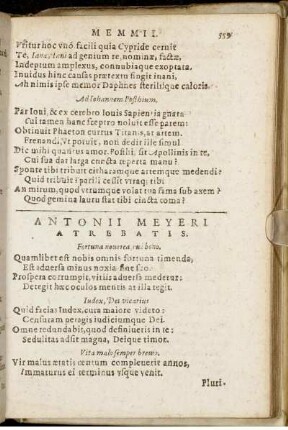 MEMMII.
559
Vritur hoc vno facili quia Cypride cernit
Te, ad genium te, nomine, factæ,
Indeptum amplexus, connubiaque exoptata.
Inuidus hinc causas prætextu fingit inani,
Ah nimis ipse memor Daphnes sterilisque caloris.
Ad Iohannem Posthium.
Par Ioni, & ex cerebro Iouis Sapientia gnata
Cui tamen hanc sceptro noluit esse parem:
Obtinuit Phaeton currus Titanis, at artem
Frenandi, Vt potuit, non dedit ille simul.
Dic mihi quantus amor, Posthi, sit Apollinis in te,
Cui sua dat larga cuncta reperta manu?
Sponte tibi tribuit citharamque artemque medendi:
Quid tribuit? parili cessit vtraq; tibi
An mirum, quod vtrumque volat tua fama sub axem?
Quod gemina lauru stat tibi cincta coma?
ANTONII MEYERI
ATREBATIS.
Fortuna nouerca,
Quamlibet est nobis omnis fortuna timenda;
Est aduersa minus noxia sine
Prospera corrumpit, vitiis aduersa medetur:
Detegit hæc oculos mentis at illa tegit.
Iudex, Dei vicarius
Quid facias Iudex, cura maiore videto:
Censuram peragis iudiciumque Dei.
Omne redundabit, quod definiueris in te:
Sedulitas adsit magna, Deique timor.
Vita malo semper breuis.
Vir malus ætatis centum compleuerit annos,
Immaturus ei terminus vsque venit.
Pluri-